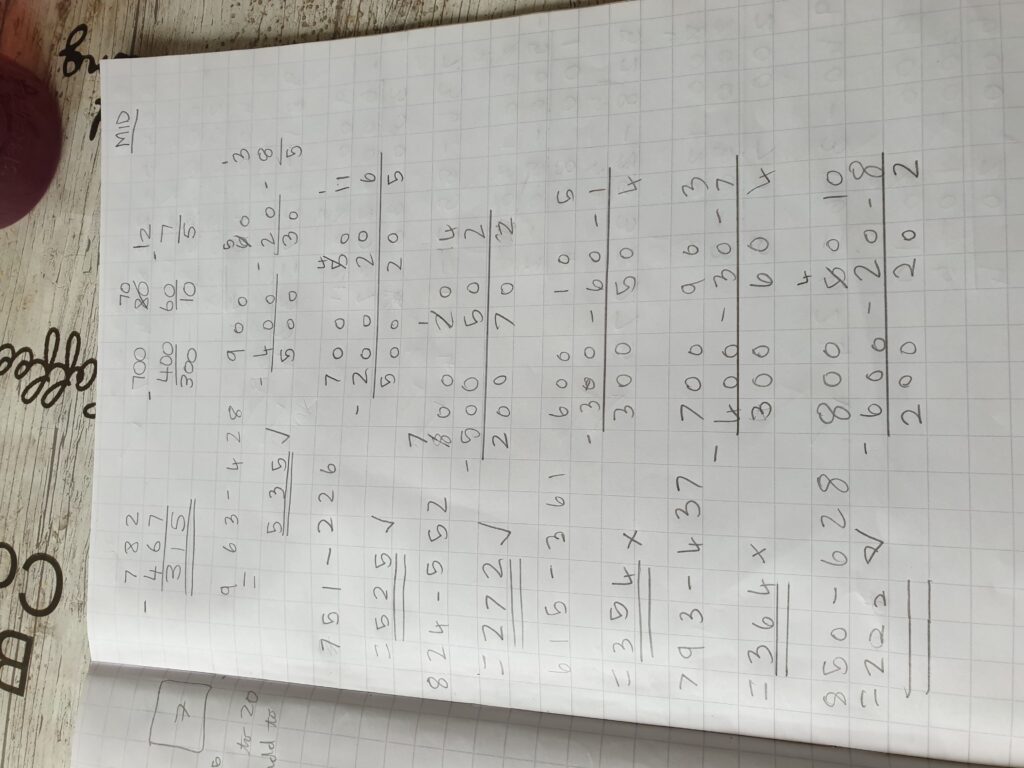 MID
- 782 - 700 70 80 - 12
467 400 60 7
315 300 10 5
963 - 428 900 5 60 1 3
= - 400 - 20 - 8
535 ✓ 500 30 5
751 - 226 700 4 50 1 11
= 525 ✓ - 200 20 6
500 20 5
824 - 552 7 800 1 20 14
= 272 ✓ - 500 50 2
200 70 2
615 - 361 600 10 5
= 354 x - 300 - 60 - 1
300 50 4
793 - 437 700 96 3
= 364 x - 400 - 30 - 7
300 60 4
850 - 628 800 4 50 10
= 222 ✓ - 600 - 20 - 8
200 20 2
7
to 20
add to